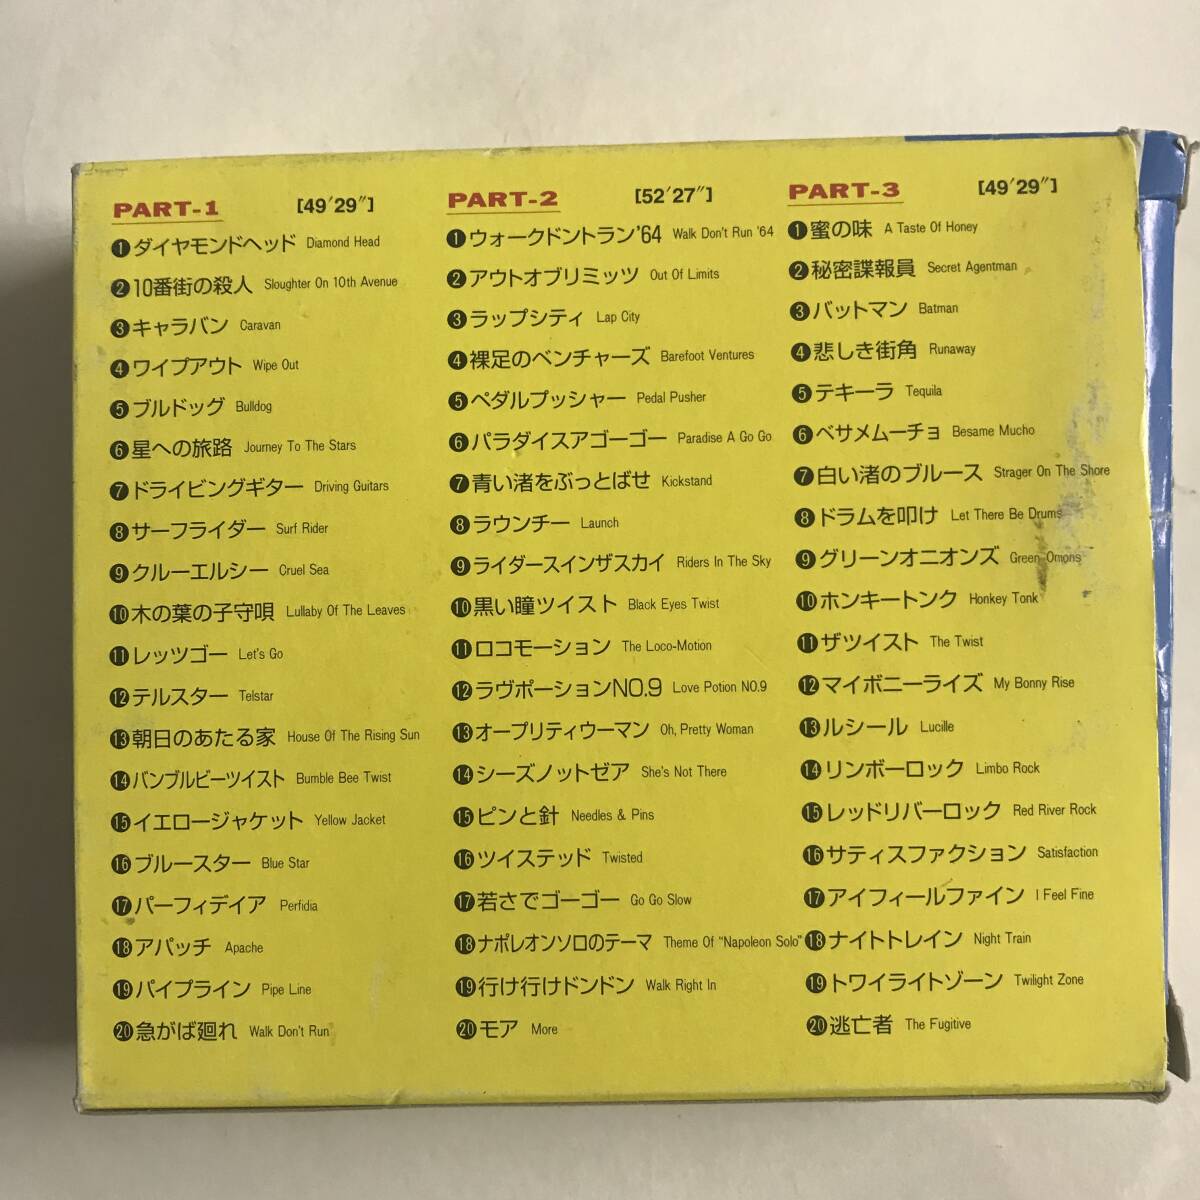 PART-1 [49′29″]
❶ダイヤモンドヘッド Diamond Head
❷10番街の殺人 Sloughter On 10th Avenue
❸キャラバン Caravan
❹ワイプアウト Wipe Out
❺ブルドッグ Bulldog
❻星への旅路 Journey To The Stars
❼ドライビングギター Driving Guitars
❽サーフライダー Surf Rider
❾クルーエルシー Cruel Sea
❿木の葉の子守唄 Lullaby Of The Leaves
⓫レッツゴー Let's Go
⓬テルスター Telstar
⓭朝日のあたる家 House Of The Rising Sun
⓮バンブルビーツイスト Bumble Bee Twist
⓯イエロージャケット Yellow Jacket
⓰ブルースター Blue Star
⓱パーフィデイア Perfidia
⓲アパッチ Apache
⓳パイプライン Pipe Line
⓴急がば廻れ Walk Don't Run
PART-2 [52′27″]
❶ウォークドントラン'64 Walk Don't Run '64
❷アウトオブリミッツ Out Of Limits
❸ラップシティ Lap City
❹裸足のベンチャーズ Barefoot Ventures
❺ペダルプッシャー Pedal Pusher
❻パラダイスアゴーゴー Paradise A Go Go
❼青い渚をぶっとばせ Kickstand
❽ラウンチー Launch
❾ライダースインザスカイ Riders In The Sky
❿黒い瞳ツイスト Black Eyes Twist
⓫ロコモーション The Loco-Motion
⓬ラヴポーションNO.9 Love Potion NO.9
⓭オープリティウーマン Oh, Pretty Woman
⓮シーズノットゼア She's Not There
⓯ピンと針 Needles & Pins
⓰ツイステッド Twisted
⓱若さでゴーゴー Go Go Slow
⓲ナポレオンソロのテーマ Theme Of "Napoleon Solo"
⓳行け行けドンドン Walk Right In
⓴モア More
PART-3 [49′29″]
❶蜜の味 A Taste Of Honey
❷秘密諜報員 Secret Agentman
❸バットマン Batman
❹悲しき街角 Runaway
❺テキーラ Tequila
❻ベサメムーチョ Besame Mucho
❼白い渚のブルース Strager On The Shore
❽ドラムを叩け Let There Be Drums
❾グリーンオニオンズ Green Omons
❿ホンキートンク Honkey Tonk
⓫ザツイスト The Twist
⓬マイボニーライズ My Bonny Rise
⓭ルシール Lucille
⓮リンボーロック Limbo Rock
⓯レッドリバーロック Red River Rock
⓰サティスファクション Satisfaction
⓱アイフィールファイン I Feel Fine
⓲ナイトトレイン Night Train
⓳トワイライトゾーン Twilight Zone
⓴逃亡者 The Fugitive